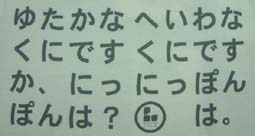 ゆたかなへいわな
くにですくにです
か、にっにっぽん
ぽんは？は。